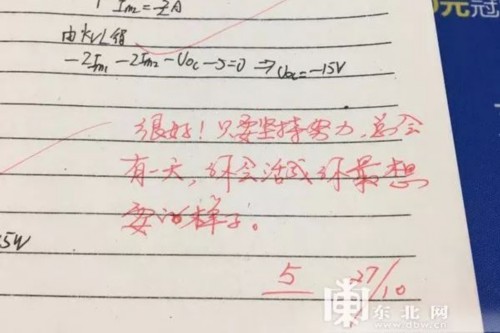 Im2=½A
由KVL得
-2Im1-2Im2-Uoc-5=0 ⇒ Uoc=-15V
很好！只要坚持努力，总会
有一天，你会活成你最想
要的样子。
5W
5 27/10
元冠
东北网
www.dbw.cn